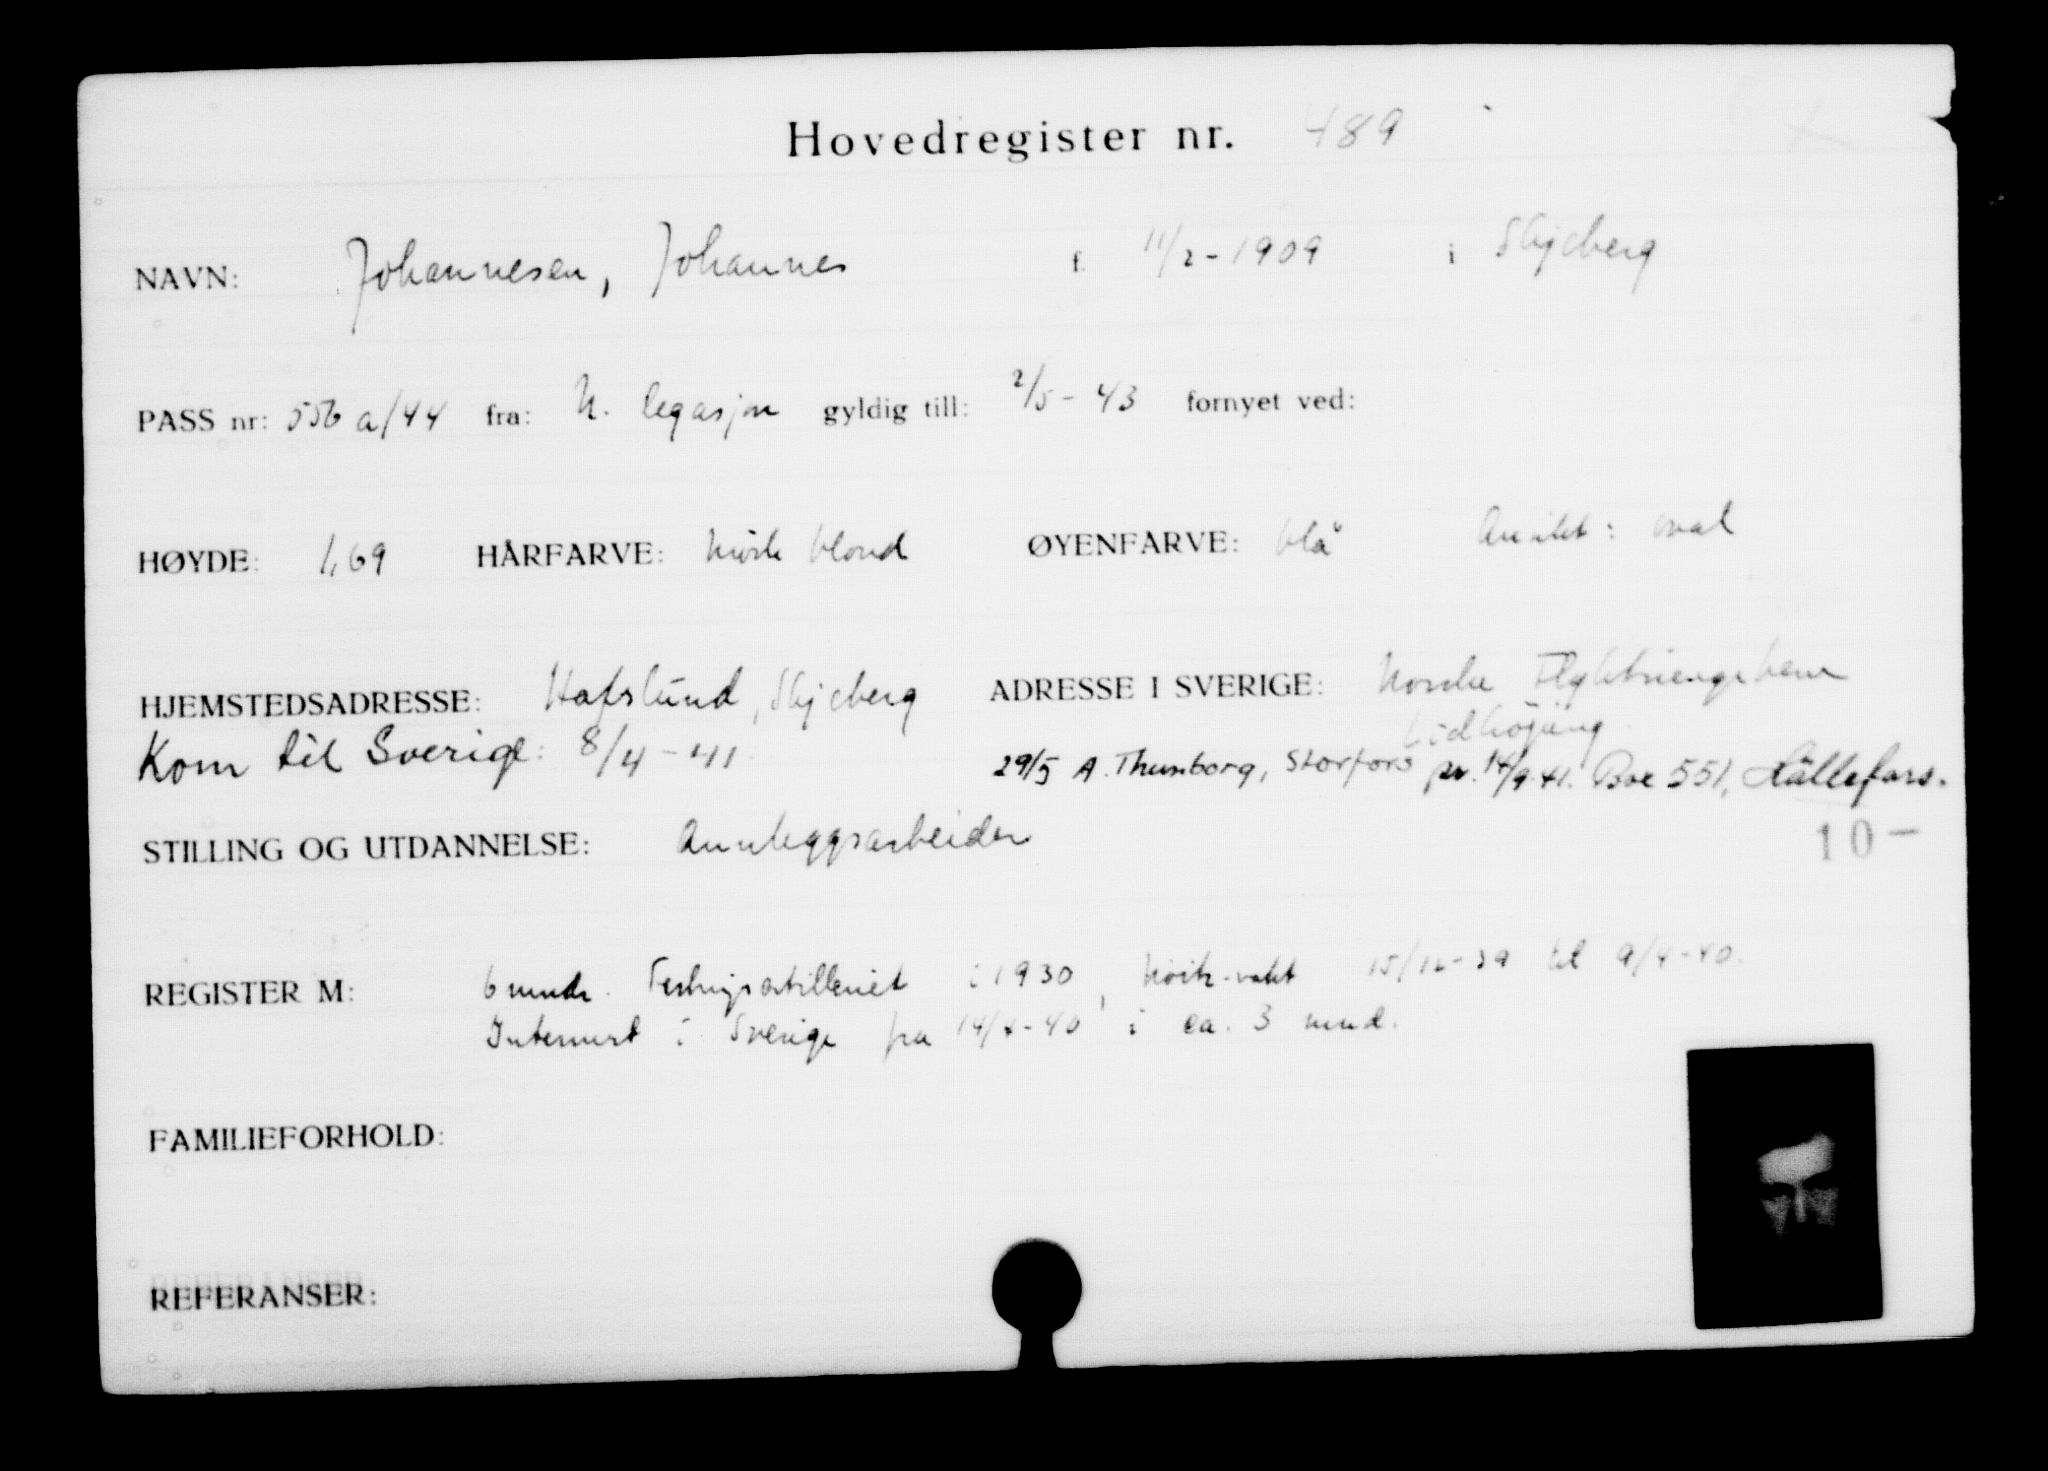 Hovedregister nr. 489
NAVN: Johannesen, Johannes f. 11/2-1909 i Skjeberg
PASS nr: 556 a/44 fra: N. legasjon gyldig till: 2/5-43 fornyet ved:
HØYDE: 1,69 HÅRFARVE: mörk blond ØYENFARVE: blå Ansikt: oval
HJEMSTEDSADRESSE: Hafslund, Skjeberg ADRESSE I SVERIGE: Norske
Kom til Sverige: 8/4-41
29/5 A. Thunborg, Storfors pr. 14/9.41. Box 551, Hällefors.
STILLING OG UTDANNELSE: Annleggsarbeider
10-
REGISTER M: 6 mndr. Festningsartilleriet i 1930, 15/12-39 til 9/4-40.
Internert i Sverige fra 14/4-40 i ca. 3 mnd.
FAMILIEFORHOLD:
REFERANSER: